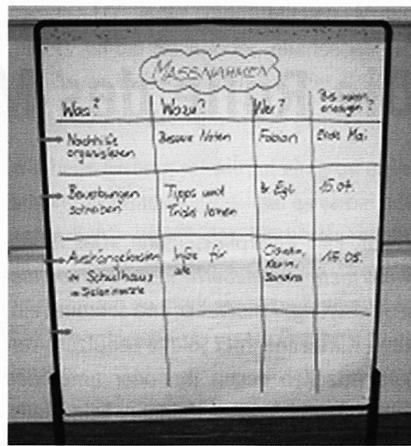 MASSNAHMEN
Was? Wozu? Wer? Bis wann erledigen?
Nachhilfe organisieren
Bessere Noten
Fabian
Ende Mai
Bewerbungen schreiben
Tipps und Tricks lernen
15.07.
Aushängekasten
im Schulhaus
Infos für alle
Karin,
Sandra
15.05.